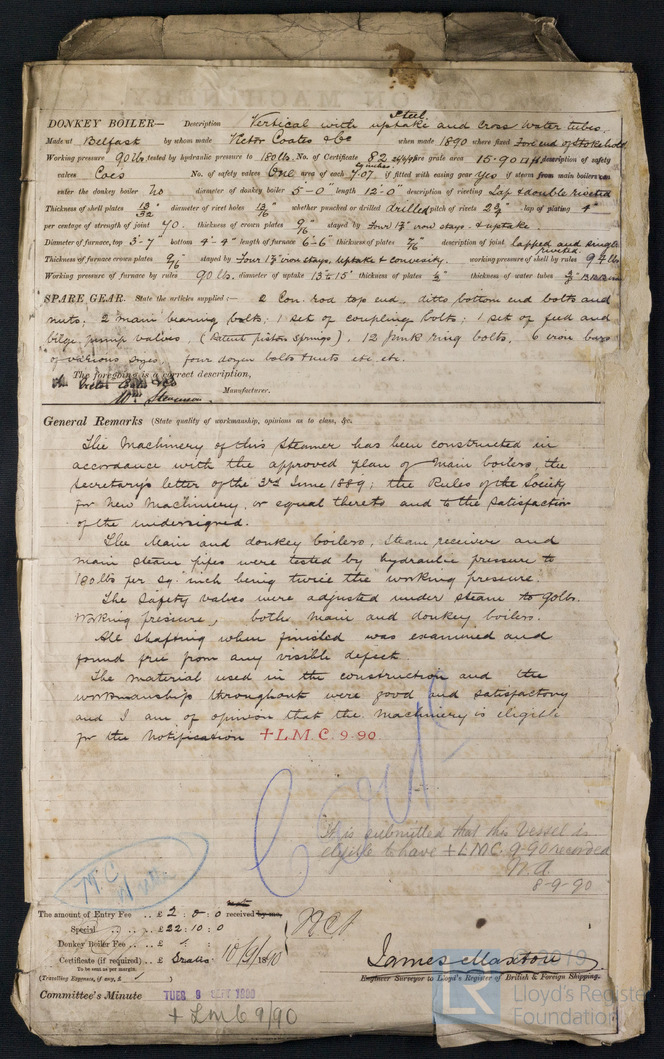 DONKEY BOILER— Description Vertical with steel uptake and cross water tubes.
Made at Belfast by whom made Victor Coates & Co when made 1890 where fixed Fore end of Stokehold
Working pressure 90 lb tested by hydraulic pressure to 180 lbs. No. of Certificate 82 grate area 15.90 description of safety
valves Coes No. of safety valves One area of each 7.07 if fitted with easing gear Yes if steam from main boilers can
enter the donkey boiler No diameter of donkey boiler 5'-0" length 12'-0" description of riveting Lap & double riveted
Thickness of shell plates 13/32 diameter of rivet holes 13/16 whether punched or drilled drilled pitch of rivets 2 3/4" lap of plating 4"
per centage of strength of joint 70. thickness of crown plates 9/16 stayed by Four 1 3/4" iron stays. & uptake.
Diameter of furnace, top 3'-7" bottom 4'-4" length of furnace 6'-6" thickness of plates 7/16 description of joint lapped and single riveted.
Thickness of furnace crown plates 9/16 stayed by Four iron stays, uptake & convexity. working pressure of shell by rules lb
Working pressure of furnace by rules 90 lb. diameter of uptake thickness of plates thickness of water tubes
SPARE GEAR. State the articles supplied:— 2 Con. rod top end ditto bottom end bolts and
nuts. 2 main bearing bolts. 1 set of coupling bolts; 1 set of feed and
bilge pump valves, (Patent piston springs). 12 Junk ring bolts. 6 iron bars
of various sizes. four dozen bolts & nuts etc etc.
The foregoing is a correct description,
Victor Coates & Co
Wm Stevenson. Manufacturer.
General Remarks (State quality of workmanship, opinions as to class, &c.
The Machinery of this Steamer has been constructed in
accordance with the approved plan of Main boilers, the
Secretary's letter of the 3rd June 1889; the Rules of the Society
for New Machinery, or equal thereto and to the satisfaction
of the undersigned.
The Main and donkey boilers, Steam receiver and
main steam pipes were tested by hydraulic pressure to
180 lbs per sq. inch being twice the working pressure.
The Safety valves were adjusted under steam to 90 lbs.
working pressure, both main and donkey boilers.
All shafting when finished was examined and
found free from any visible defect.
The material used in the construction and the
workmanship throughout were good and satisfactory
and I am of opinion that the Machinery is eligible
for the Notification +L.M.C. 9.90.
It is submitted that this Vessel is
eligible to have +LMC 9-90 recorded
8-9-90
M.C
The amount of Entry Fee .. £ 2 : 0 : 0 received by me,
Special .. £ 22 : 10 : 0
Donkey Boiler Fee .. £
Certificate (if required) .. £ Gratis 10/9/1890
To be sent as per margin.
(Travelling Expenses, if any, £ )
James Maxton
Engineer Surveyor to Lloyd's Register of British & Foreign Shipping.
Committee's Minute TUES 9 SEPT 1890
+ LMC 9/90
© 2019
LR Lloyd's Register
Foundation